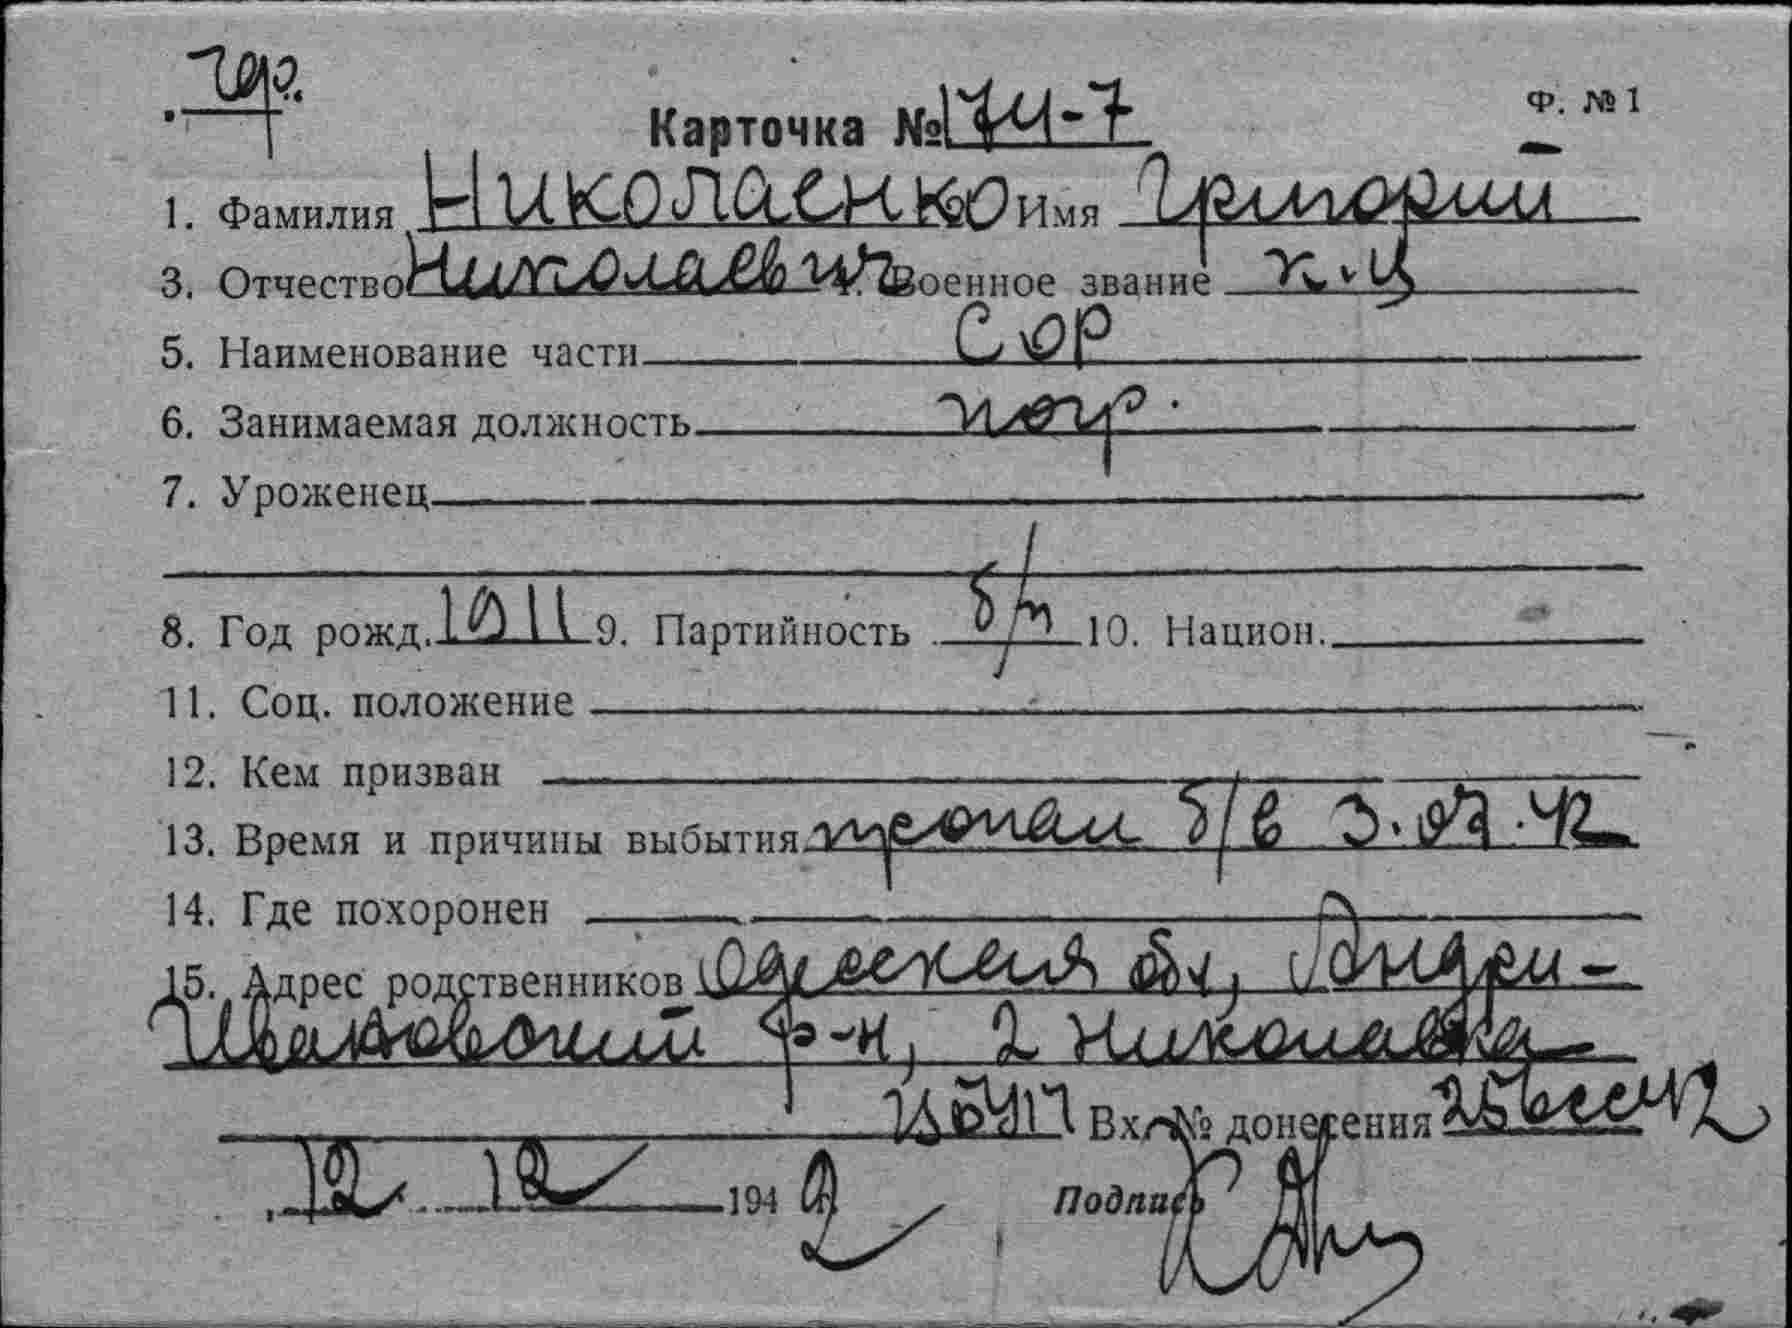 Ф. № 1
Карточка № 174-7
1. Фамилия Николаенко Имя Григорий
3. Отчество Николаевич Военное звание к-ц
5. Наименование части
6. Занимаемая должность
7. Уроженец
8. Год рожд. 1911 9. Партийность б/п 10. Национ.
11. Соц. положение
12. Кем призван
13. Время и причины выбытия пропал б/в 3.07.42
14. Где похоронен
15. Адрес родственников Одесская обл, Андре-
Ивановский р-н, Николаевка
Вх. № донесения
12 12 1942 Подпись